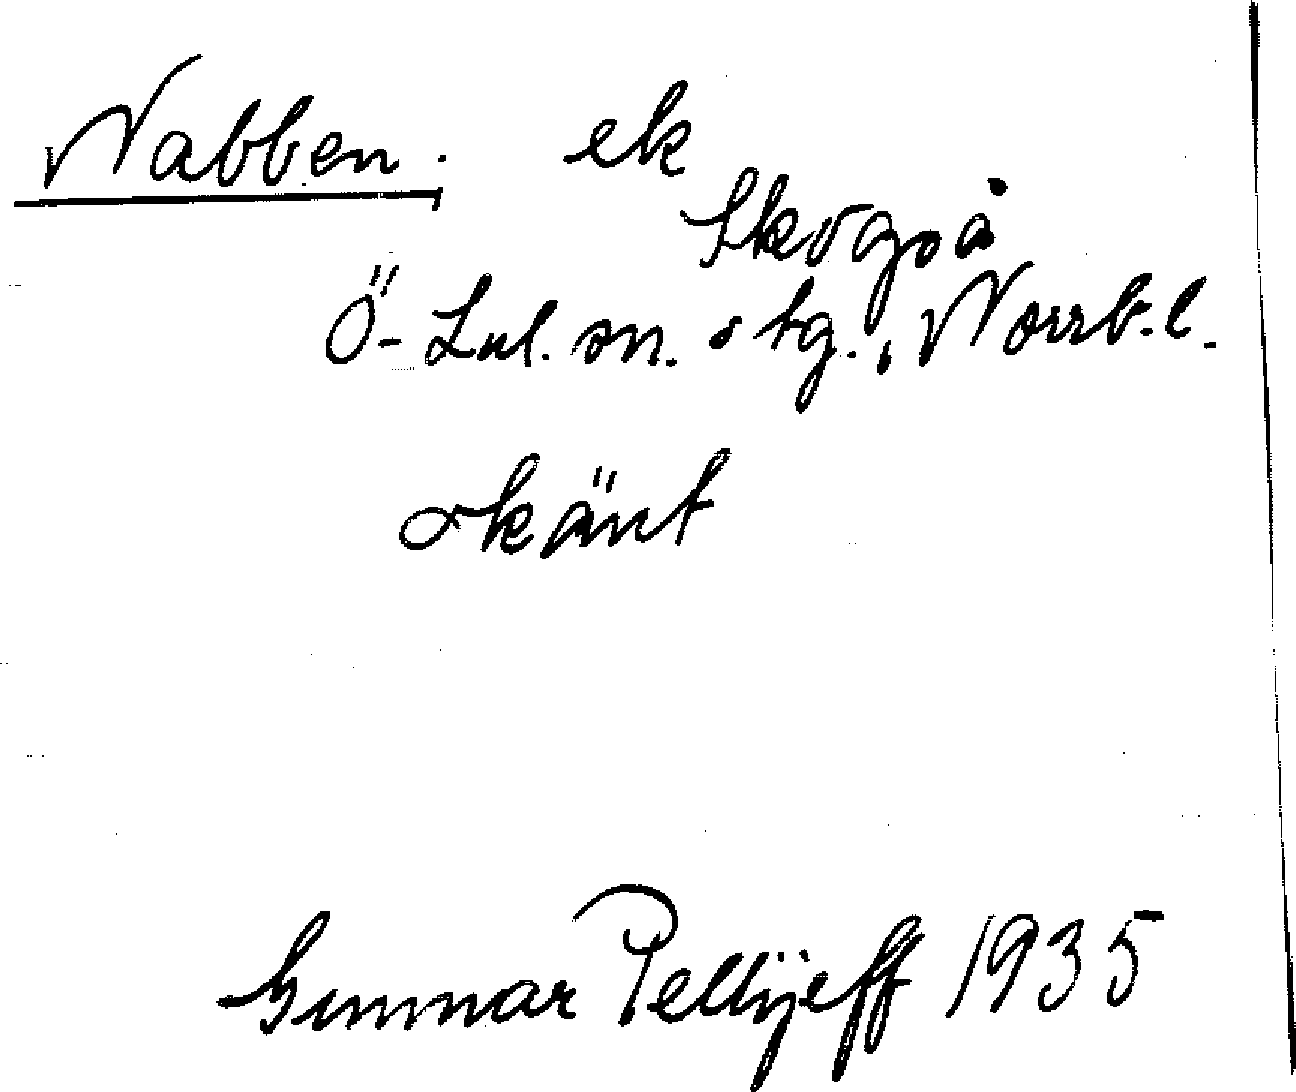 Nabben. ek
Skogså
Ö-Lul. sn. o tg., Norrb. l.
okänt
Gunnar Pellijeff 1935